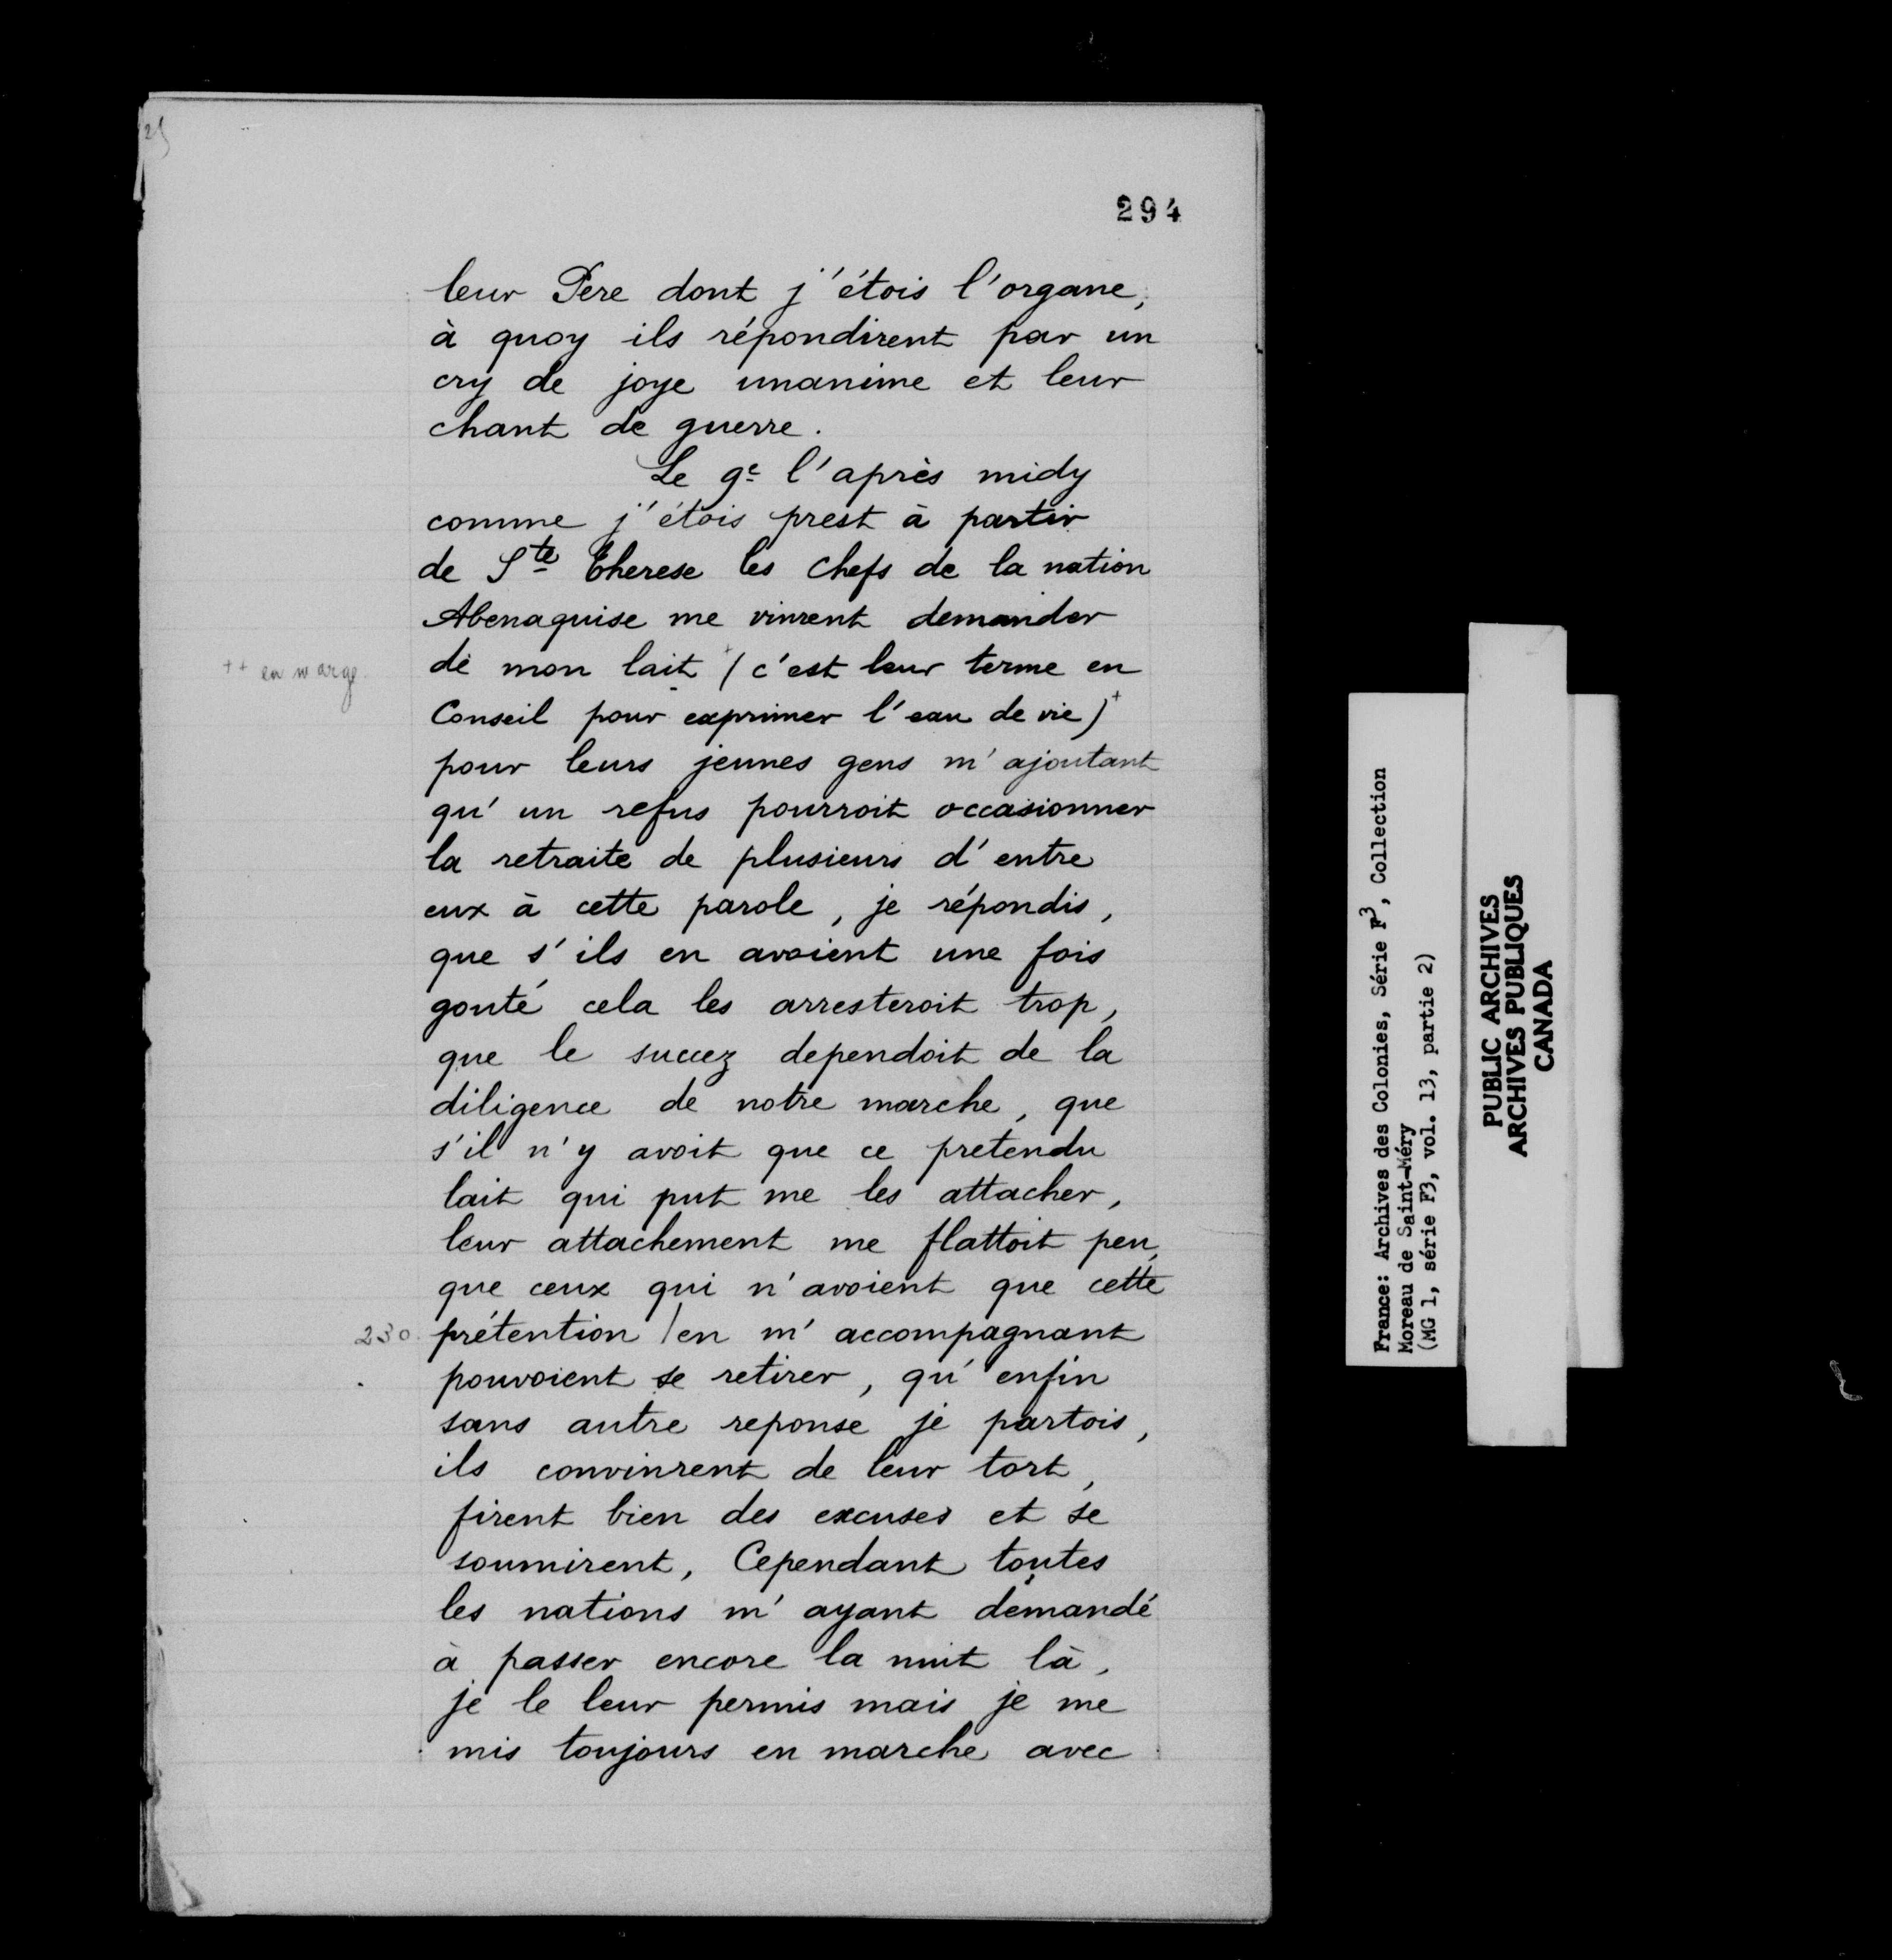 294
leur Pere dont j'étois l'organe,
à quoy ils répondirent par un
cry de joye unanime et leur
chant de guerre.
Le 9e l'après midy
comme j'étois prest à partir
de Ste Therese les chefs de la nation
Abenaquise me vinrent demander
++ en marge.
de mon lait + (c'est leur terme en
Conseil pour exprimer l'eau de vie)+
pour leurs jeunes gens m'ajoutant
qu'un refus pourroit occasionner
la retraite de plusieurs d'entre
eux à cette parole, je répondis,
que s'ils en avoient une fois
gouté cela les arresteroit trop,
que le succez dependoit de la
diligence de notre marche, que
s'il n'y avoit que ce pretendu
lait qui put me les attacher,
leur attachement me flattoit peu,
que ceux qui n'avoient que cette
230. prétention / en m'accompagnant
pouvoient se retirer, qu'enfin
sans autre reponse je partois,
ils convinrent de leur tort,
firent bien des excuses et se
soumirent, Cependant toutes
les nations m'ayant demandé
à passer encore la nuit là,
je le leur permis mais je me
mis toujours en marche avec
France: Archives des Colonies, Série F3, Collection
Moreau de Saint-Méry
(MG 1, série F3, vol. 13, partie 2)
PUBLIC ARCHIVES
ARCHIVES PUBLIQUES
CANADA